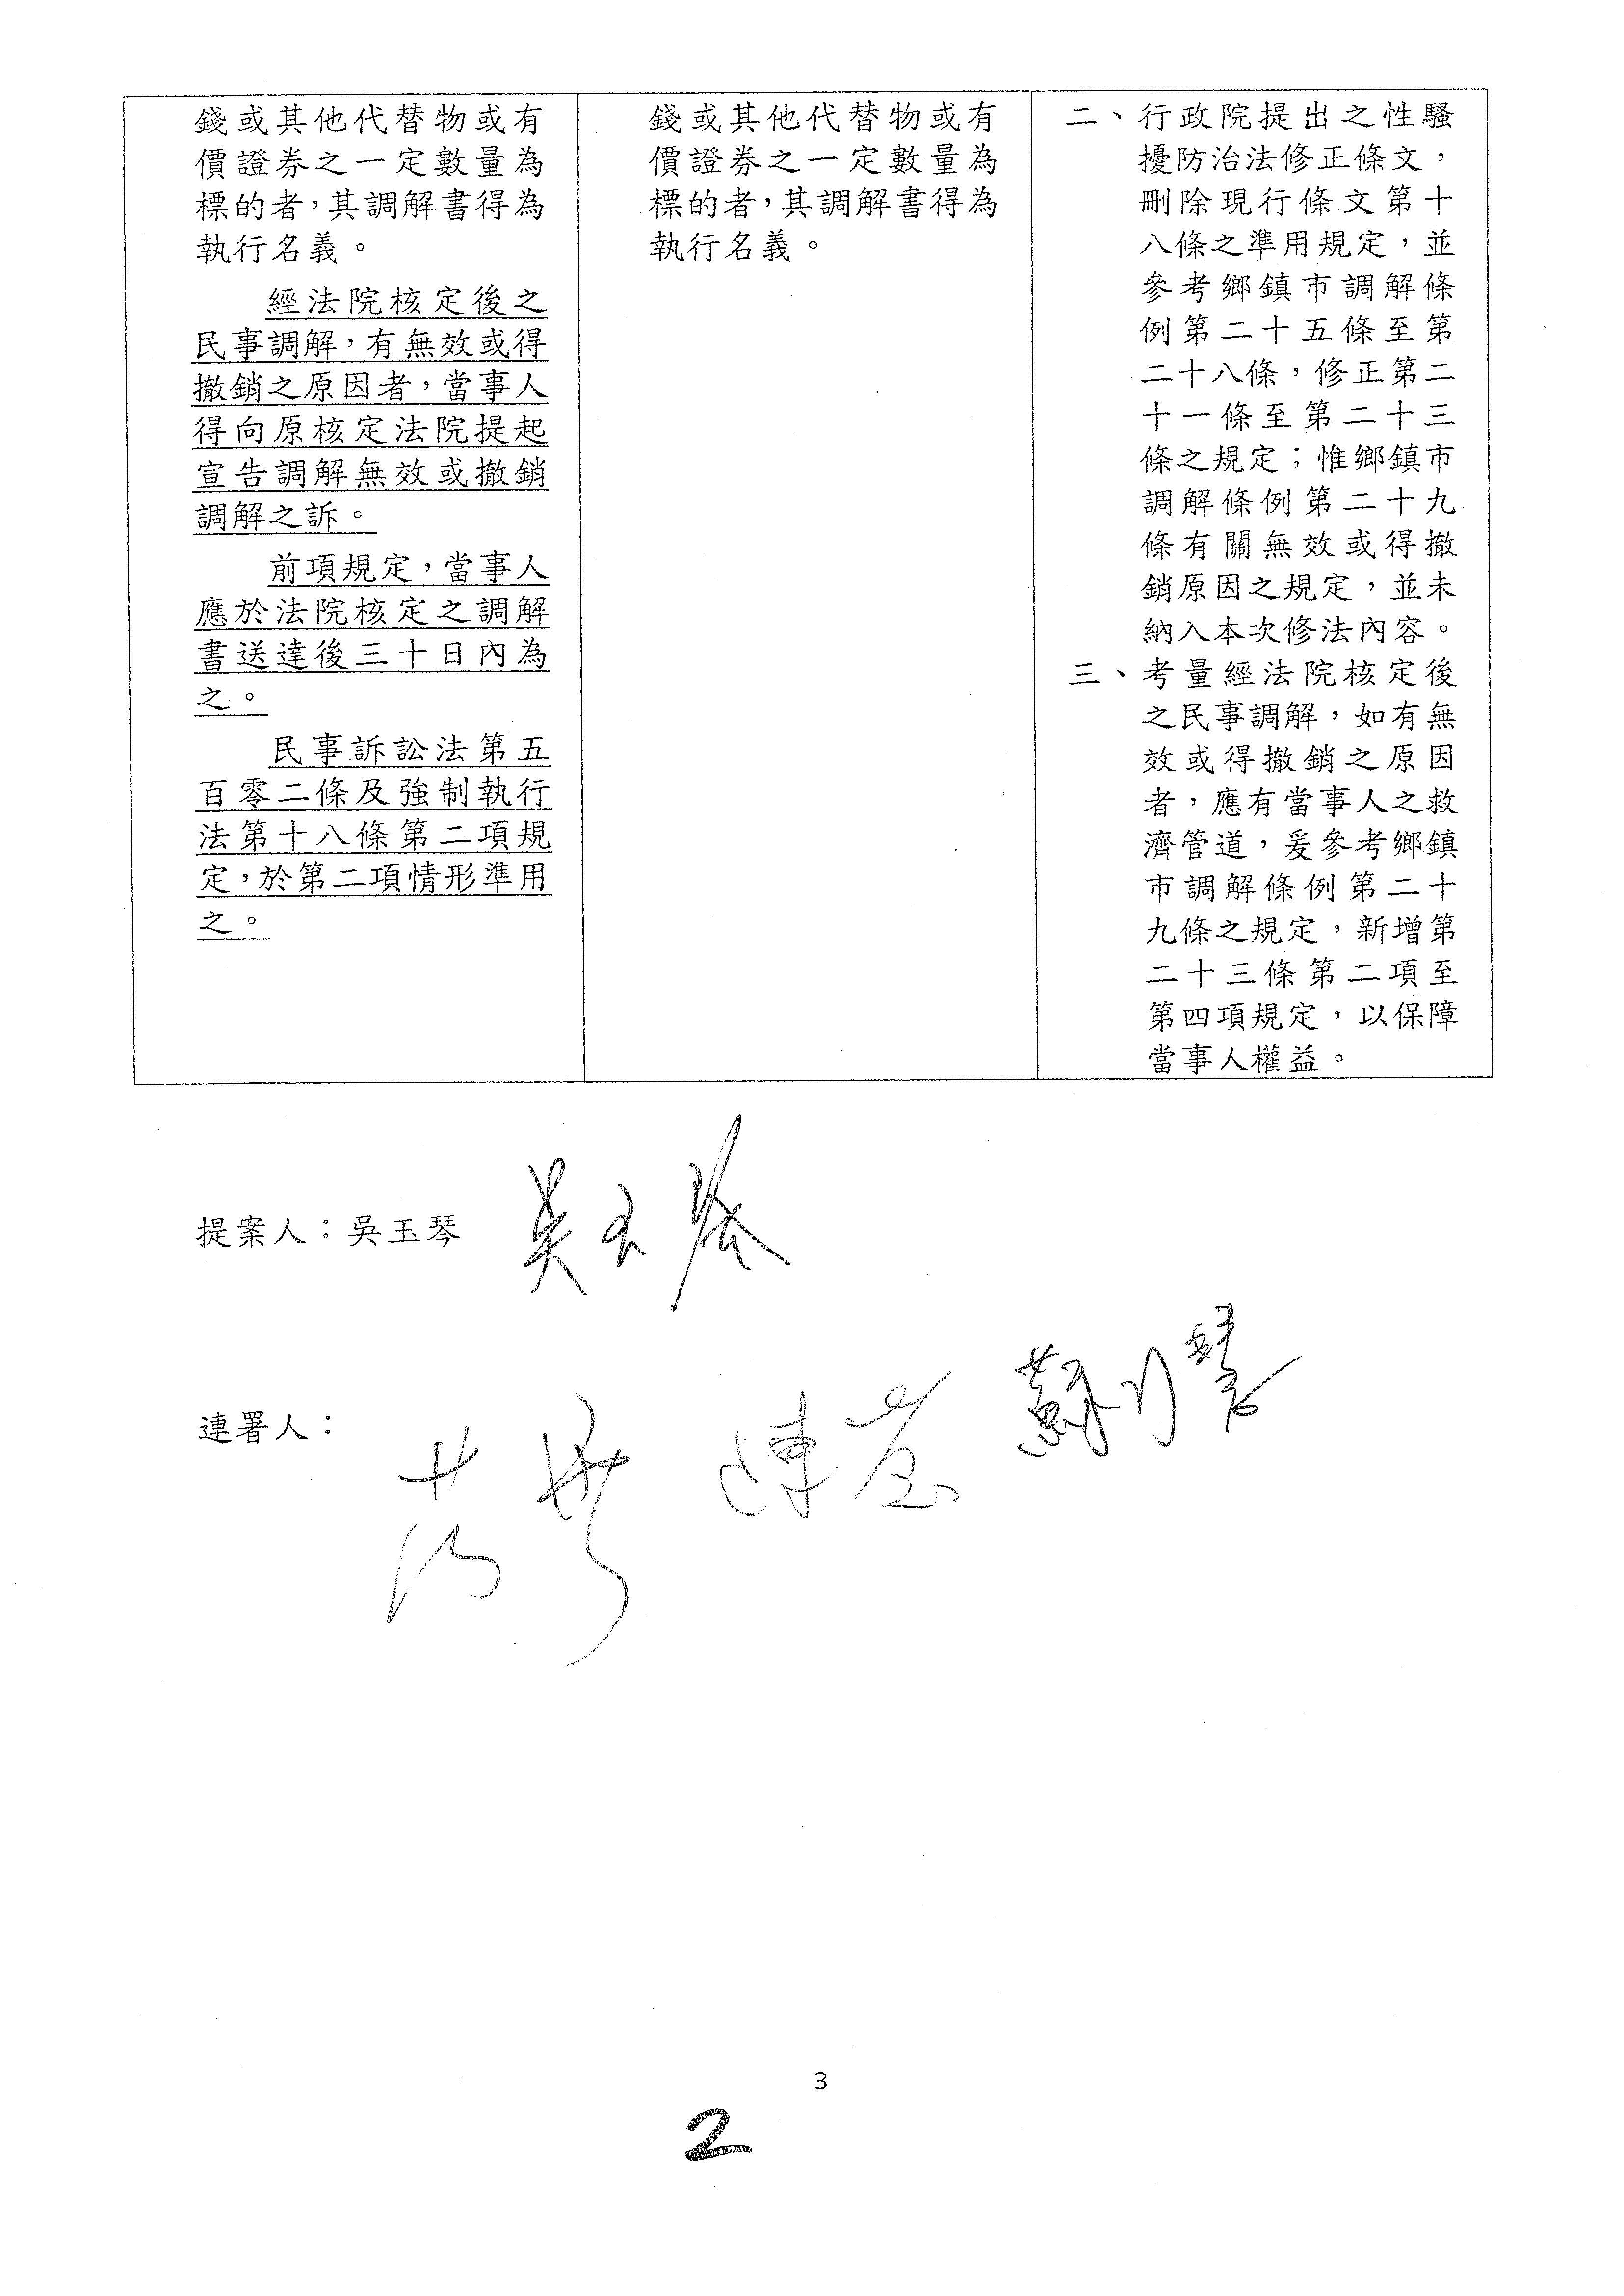 錢或其他代替物或有
價證券之一定數量為
標的者，其調解書得為
執行名義。
經法院核定後之
民事調解，有無效或得
撤銷之原因者，當事人
得向原核定法院提起
宣告調解無效或撤銷
調解之訴。
前項規定，當事人
應於法院核定之調解
書送達後三十日內為
之。
民事訴訟法第五
百零二條及強制執行
法第十八條第二項規
定，於第二項情形準用
之。
錢或其他代替物或有
價證券之一定數量為
標的者，其調解書得為
執行名義。
二、行政院提出之性騷
擾防治法修正條文，
刪除現行條文第十
八條之準用規定，並
參考鄉鎮市調解條
例第二十五條至第
二十八條，修正第二
十一條至第二十三
條之規定；惟鄉鎮市
調解條例第二十九
條有關無效或得撤
銷原因之規定，並未
納入本次修法內容。
三、考量經法院核定後
之民事調解，如有無
效或得撤銷之原因
者，應有當事人之救
濟管道，爰參考鄉鎮
市調解條例第二十
九條之規定，新增第
二十三條第二項至
第四項規定，以保障
當事人權益。
提案人：吳玉琴 吳玉琴
連署人：
3
2